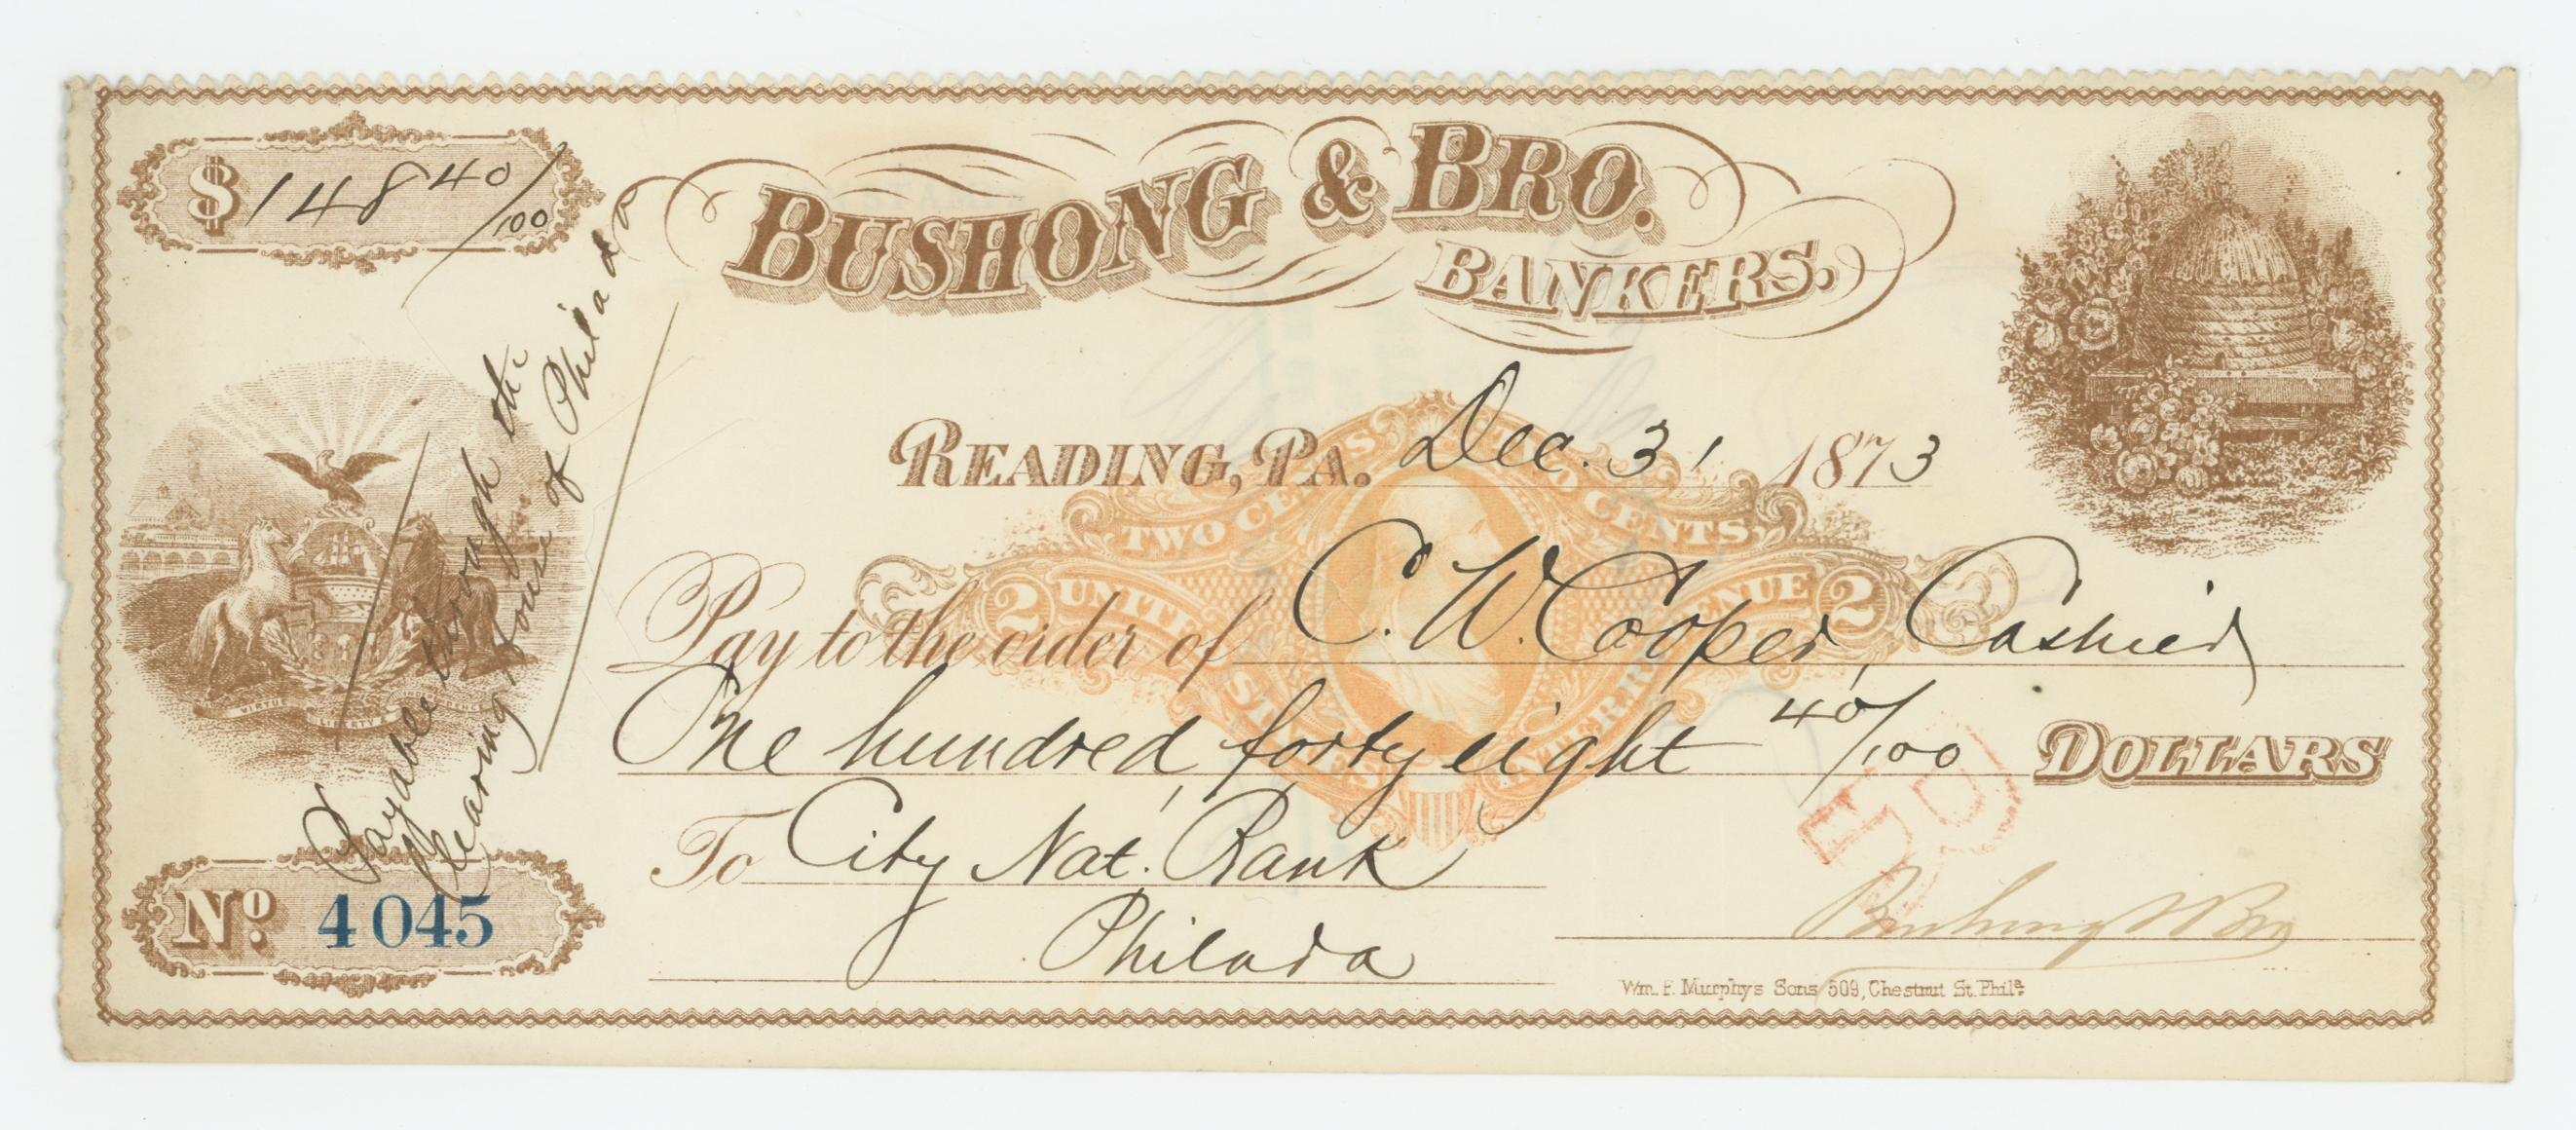 $148 40/100
BUSHONG & BRO.
BANKERS.
READING, PA. Dec. 31 1873
TWO CENTS. TWO CENTS.
2 UNITED STATES INTER. REVENUE 2
Pay to the order of C. W. Cooper, Cashier
One hundred forty eight 40/100 DOLLARS
To City Nat. Bank
Philada
Bushong & Bro
Payable through the
Clearing House of Philada
VIRTUE LIBERTY INDEPENDENCE
No. 4045
Wm. F. Murphy's Sons 509, Chestnut St. Phila.